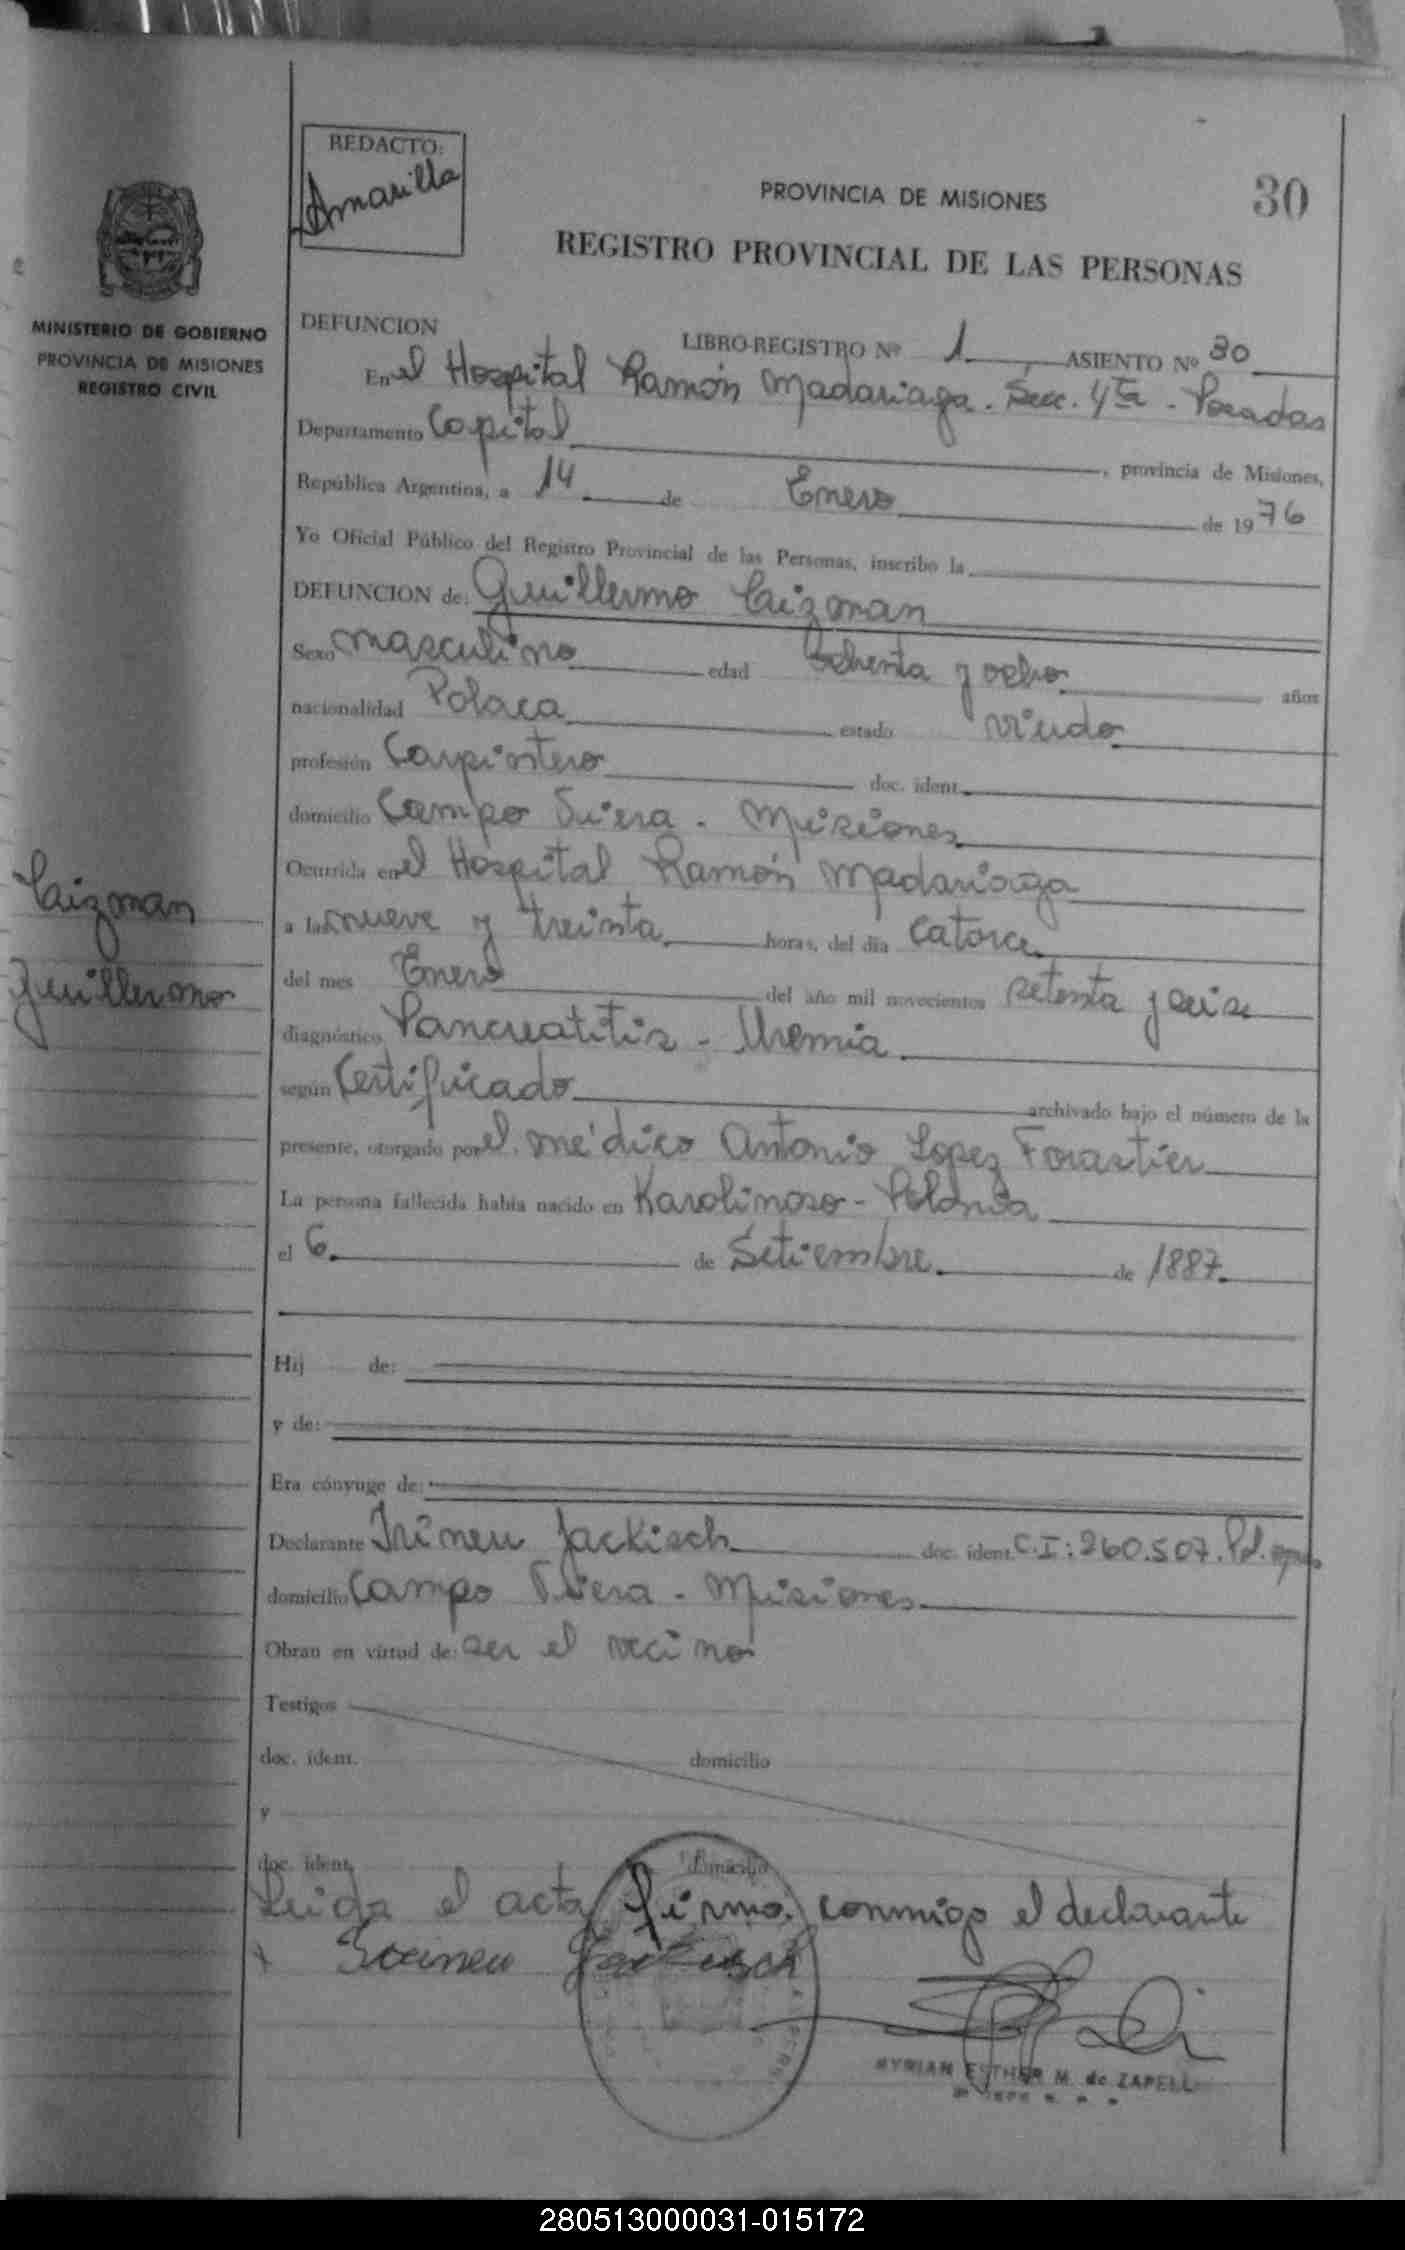 REDACTO:
Amarilla
PROVINCIA DE MISIONES
30
REGISTRO PROVINCIAL DE LAS PERSONAS
MINISTERIO DE GOBIERNO
PROVINCIA DE MISIONES
REGISTRO CIVIL
DEFUNCION
LIBRO-REGISTRO Nº 1, ASIENTO Nº 30
En el Hospital Ramón Madariaga. Sec. 4ta - Posadas
Departamento Capital, provincia de Misiones,
República Argentina, a 14 de Enero de 1976
Yo Oficial Público del Registro Provincial de las Personas, inscribo la
DEFUNCION de: Guillermo Caizman
Sexo masculino edad ochenta y ocho años
nacionalidad Polaca estado viudo
profesión Carpintero doc. ident.
domicilio Campo Viera - Misiones
Ocurrida en el Hospital Ramón Madariaga
Caizman
Guillermo
a las nueve y treinta horas, del día catorce
del mes Enero del año mil novecientos setenta y seis
diagnóstico Pancreatitis - Uremia
según Certificado archivado bajo el número de la
presente, otorgado por el médico Antonio Lopez Forastier
La persona fallecida había nacido en Karolinoso - Polonia
el 6 de Setiembre de 1887
Hij de:
y de:
Era cónyuge de:
Declarante Irineu Jackisch doc. ident. C.I: 260.507. Pol.
domicilio Campo Viera - Misiones
Obran en virtud de: ser el vecino
Testigos
doc. ident. domicilio
y
doc. ident. domicilio
Leida el acta firma conmigo el declarante
Irineu Jackisch
MYRIAN ESTHER M. de ZAPELLI
280513000031-015172